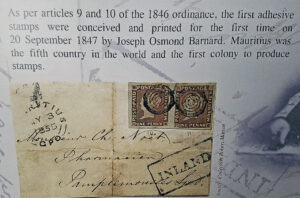 As per articles 9 and 10 of the 1846 ordinance, the first adhesive
stamps were conceived and printed for the first time on
20 September 1847 by Joseph Osmond Barnard. Mauritius was
the fifth country in the world and the first colony to produce
stamps.
POSTAGE POSTAGE
ONE PENNY ONE PENNY
Pharmacien
Pamplemousses
INLAND